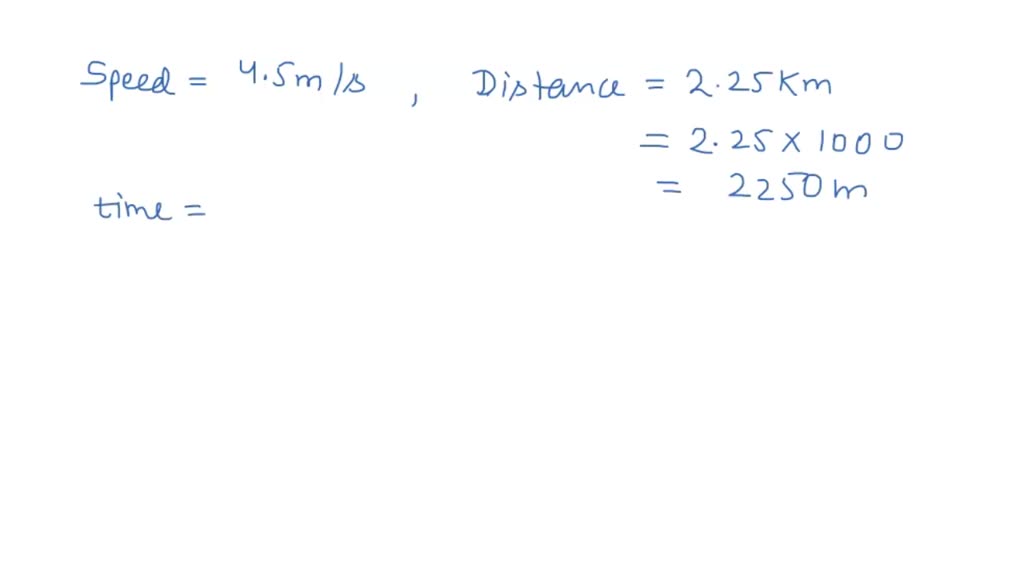 Speed = 4.5m/s , Distance = 2.25Km
= 2.25 x 1000
= 2250m
time =